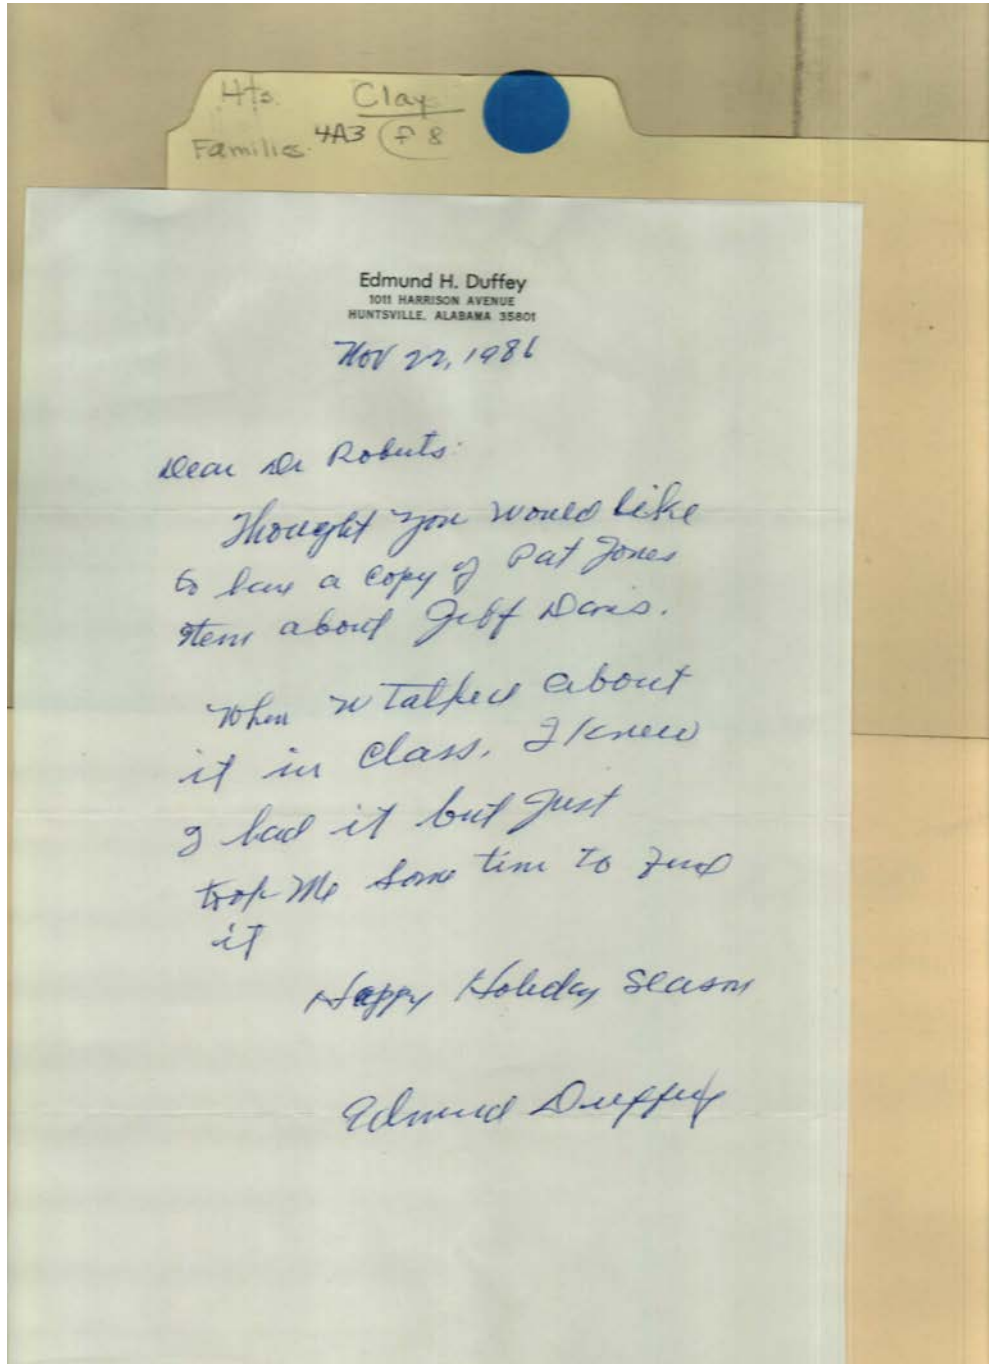 Hts. Clay
Families. 4A3 f 8
Edmund H. Duffey
1011 HARRISON AVENUE
HUNTSVILLE, ALABAMA 35801
Nov 22, 1986
Dear Dr Roberts:
Thought you would like
to have a copy of Pat Jones
item about Jeff Davis.
When we talked about
it in class, I knew
I had it but just
took me some time to find
it
Happy Holiday Season
Edmund Duffey